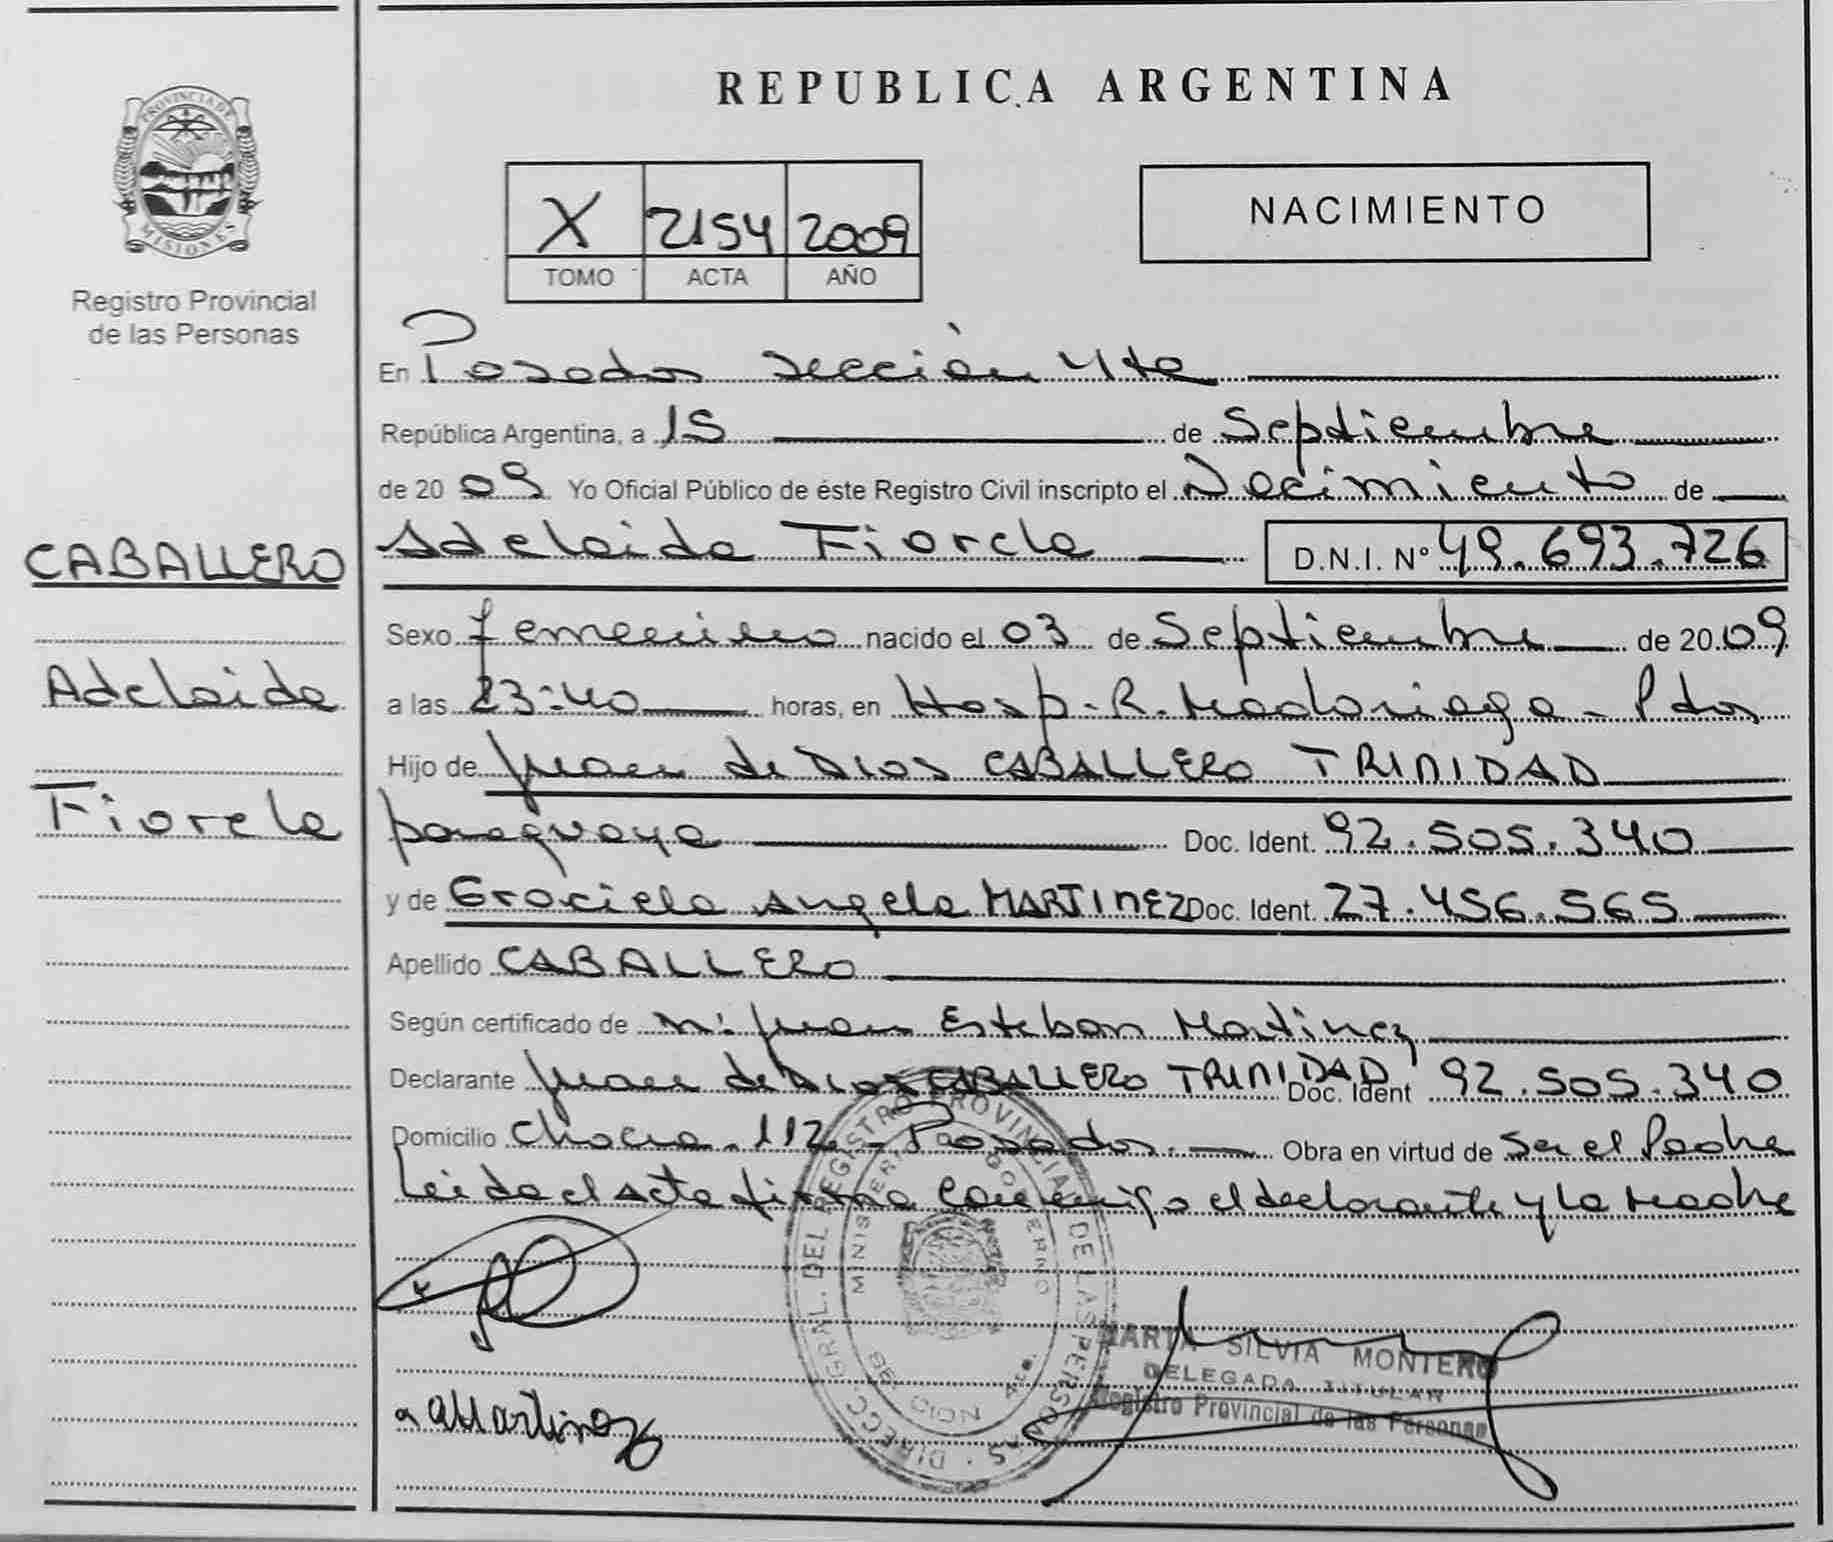 PROVINCIA DE
MISIONES
Registro Provincial
de las Personas
CABALLERO
Adelaida
Fiorela
REPUBLICA ARGENTINA
X 2154 2009
TOMO ACTA AÑO
NACIMIENTO
En Posadas sección 4ta
República Argentina, a 15 de Septiembre
de 20 09 Yo Oficial Público de éste Registro Civil inscripto el Nacimiento de
Adelaida Fiorela D.N.I. Nº 49.693.726
Sexo femenino nacido el 03 de Septiembre de 20 09
a las 23:40 horas, en Hosp. R. Madariaga - Pdas
Hijo de Juan de Dios CABALLERO TRINIDAD
paraguaya Doc. Ident. 92.505.340
y de Graciela Angela MARTINEZ Doc. Ident. 27.456.565
Apellido CABALLERO
Según certificado de Juan Esteban Martinez
Declarante Juan de Dios CABALLERO TRINIDAD Doc. Ident 92.505.340
Domicilio Chacra 112 - Posadas. Obra en virtud de Ser el Padre
Leida el Acta firma conmigo el declarante y la Madre
DIRECC. GRAL. DEL REGISTRO PROVINCIAL DE LAS PERSONAS
MARTA SILVIA MONTERO
DELEGADA TITULAR
Registro Provincial de las Personas
Martinez